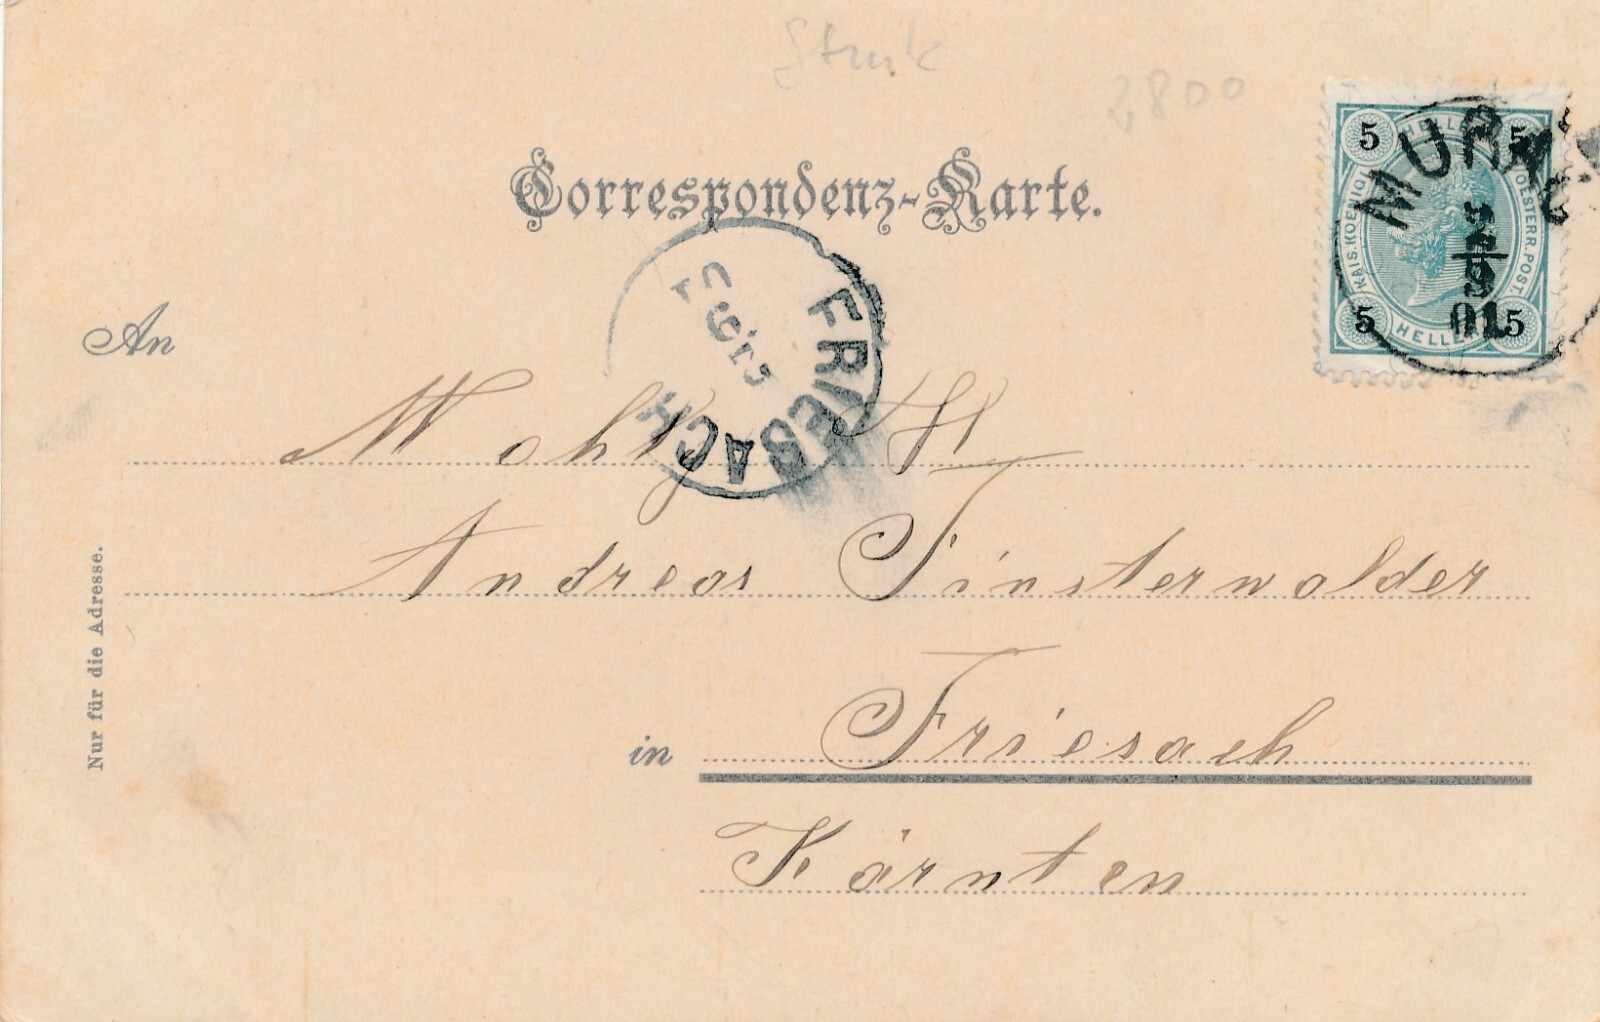 2800
Correspondenz-Karte.
5 HELLER 5
KAIS. KOENIGL. OESTERR. POST.
5 HELLER 5
MURAU
24/9
01
FRIESACH
An
Wohlg H
Andreas Finsterwalder
in Friesach
Kärnten
Nur für die Adresse.